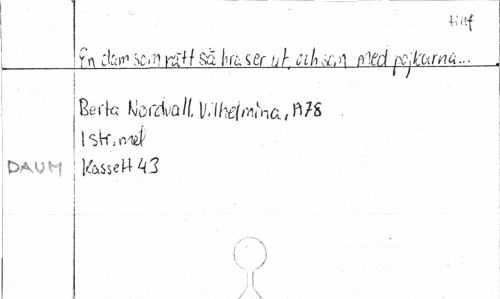 tillf
En dam som rätt så bra ser ut, och som med pojkarna...
Berta Nordvall, Vilhelmina, A78
1 str. mel
DAUM Kassett 43